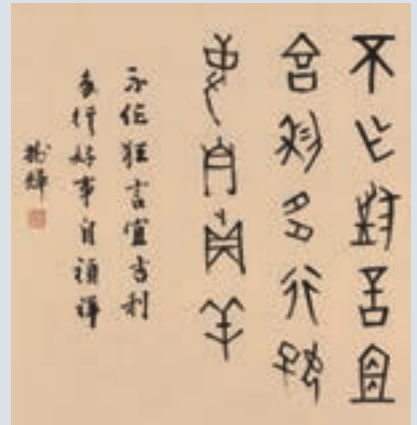 不乍狂言宜
吉利多行好
事自貞羊
不作狂言宜吉利
多行好事自禎祥